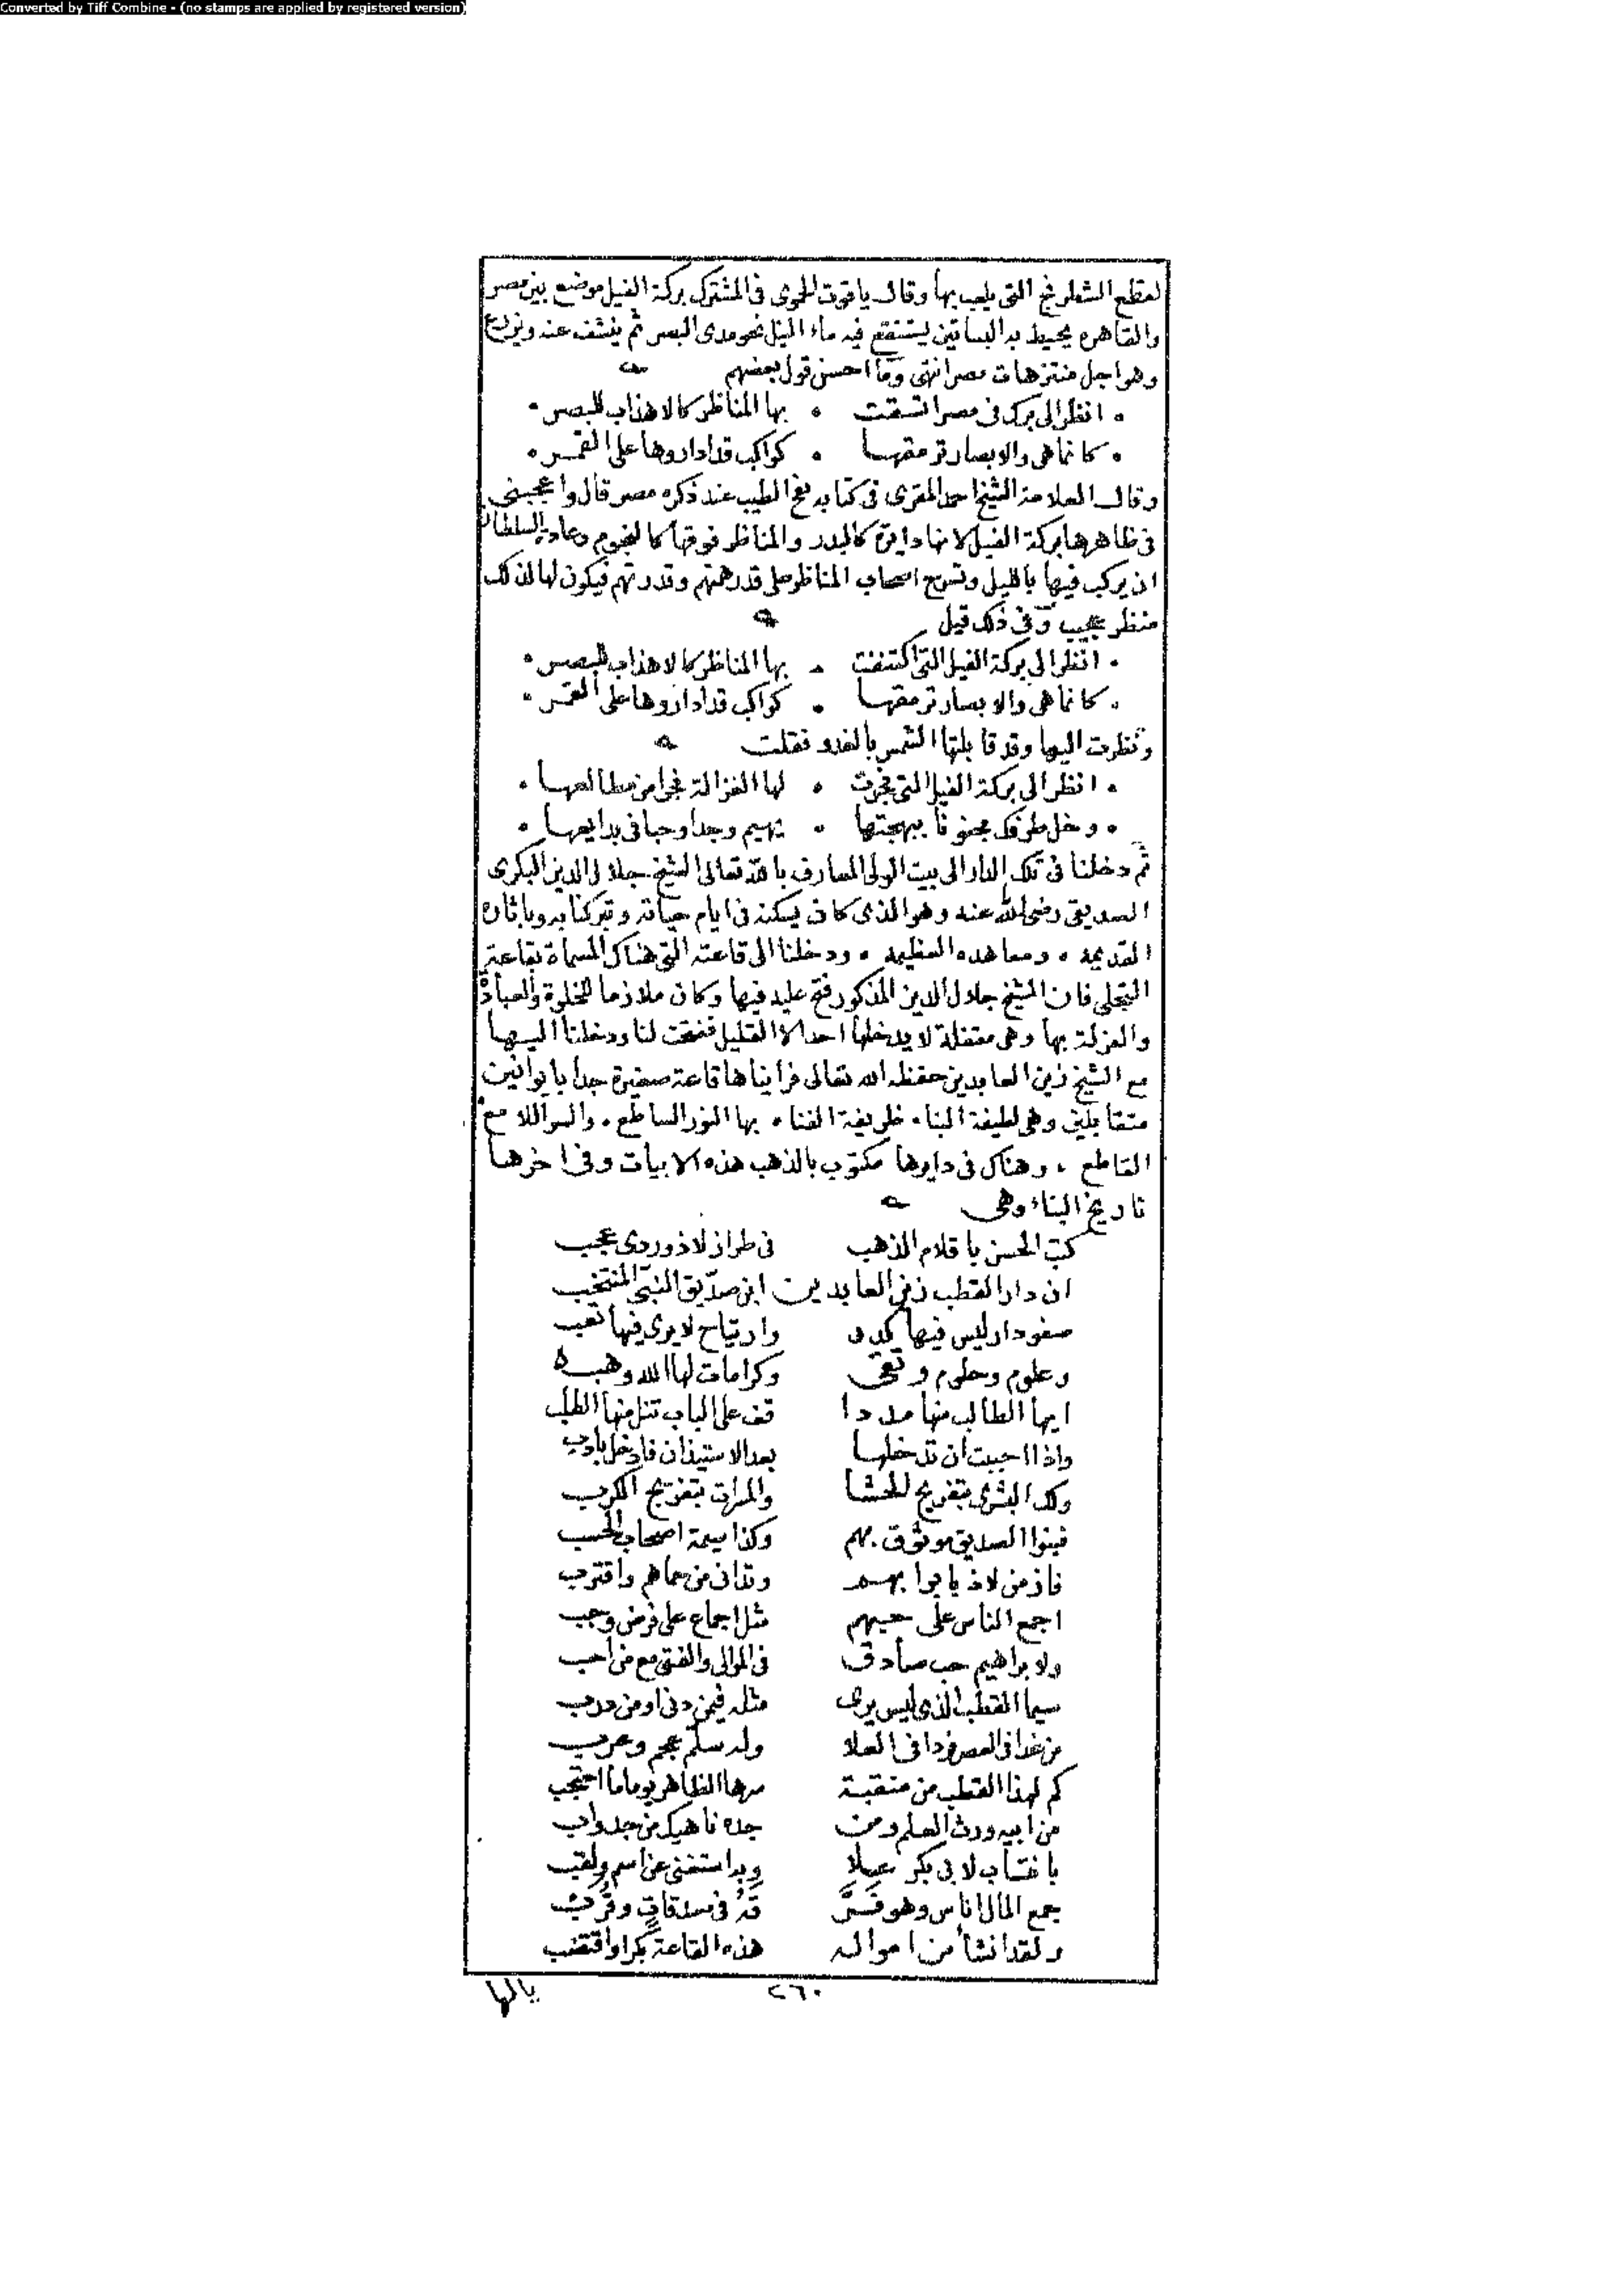 Converted by Tiff Combine - (no stamps are applied by registered version)
لقطع الشطرنج التى يلعب بها وقال ياقوت الحموى فى المشترك بركة الفيل موضع بين مصر
والقاهره يحيط به البساتين يستنقع فيه ماء النيل نحو مدى البصر ثم ينشف عنه ويزرع
وهو اجل منتزهات مصر انتهى وما احسن قول بعضهم
انظر الى بركة فى مصر اتسقت • بها المناظر كالاهداب للبصر •
• كانما هى والابصار ترمقها • كواكب قد اداروها على القمر •
وقال العلامة الشيخ احمد المقرى فى كتابه نفح الطيب عند ذكره مصر قال واعجبنى
فى ظاهرها بركة الفيل لانها دايرة كالبدر والمناظر فوقها كالنجوم وعادة السلطان
ان يركب فيها بالليل وتسرج اصحاب المناظر على قدر همتهم وقدرتهم فيكون لها لذلك
منظر عجيب وفى ذلك قيل
• انظر الى بركة الفيل التى اكتنفت • بها المناظر كالاهداب للبصر •
• كانما هى والابصار ترمقها • كواكب قد اداروها على القمر •
ونظرت اليها وقد قابلتها الشمس بالغدو فقلت
• انظر الى بركة الفيل التى نحرت • لها الغزالة نحرا من مطالعها •
• وخل طرفك مجنونا ببهجتها • يهيم وجدا وحبا فى بدايعها •
ثم دخلنا فى تلك الدار الى بيت الولى العارف بالله تعالى الشيخ جلال الدين البكرى
الصديقى رضى الله عنه وهو الذى كان يسكنه فى ايام حياته وتبركنا به وباثاره
القديمة • ومعاهده العظيمه • ودخلنا الى قاعته التى هناك المسماة بقاعة
التجلى فان الشيخ جلال الدين المذكور فتح عليه فيها وكان ملازما للخلوة والعبادة
والعزلة بها وهى مقفلة لا يدخلها احد الا القليل ففتحت لنا ودخلنا اليها
مع الشيخ زين العابدين حفظه الله تعالى فرايناها قاعة صغيرة جدا بايوانين
متقابلين وهى لطيفة البناء • ظريفة الفناء • بها النور الساطع • والسر اللامع
القاطع • وهناك فى دايرها مكتوب بالذهب هذه الابيات وفى اخرها
تاريخ البناء وهى
كتب الحسن باقلام الذهب فى طراز لازوردى عجب
ان دار القطب زين العابدين ابن صديق النبى المنتخب
صفو دار ليس فيها كدر وارتياح لا يرى فيها تعب
وعلوم وحلوم وتقى وكرامات لها الله وهب
ايها الطالب منها مددا قف على الباب تنل منها الطلب
واذا احببت ان تدخلها بعد الاستيذان فادخل بادب
ولك البشرى بتفريح الحشا والمسرات بتفريج الكرب
فبنوا الصديق موثوق بهم وكذا سيمة اصحاب الحسب
فاز من لاذ بابوابهم وتدانى من حماهم واقترب
اجمع الناس على حبهم مثل اجماع على فرض وجب
ولابراهيم حب صادق فى الموالى والفتى مع من احب
سيما القطب الذى ليس يرى مثله فيمن دنى او من درب
من غدا فى العصر فردا فى العلا وله سلم عجم وعرب
كم لهذا القطب من منقبة سرها الظاهر يوما ما احتجب
من ابيه ورث العلم ومن جده ناهيك من جد واب
بانتساب لابى بكر علا وبه استغنى عن اسم ولقب
جمع المال اناس وهو فرّ قه فى صدقات وقرب
ولقد انشأ من امواله هذه القاعة بكرا واقتضب
٢٦٠
يالها